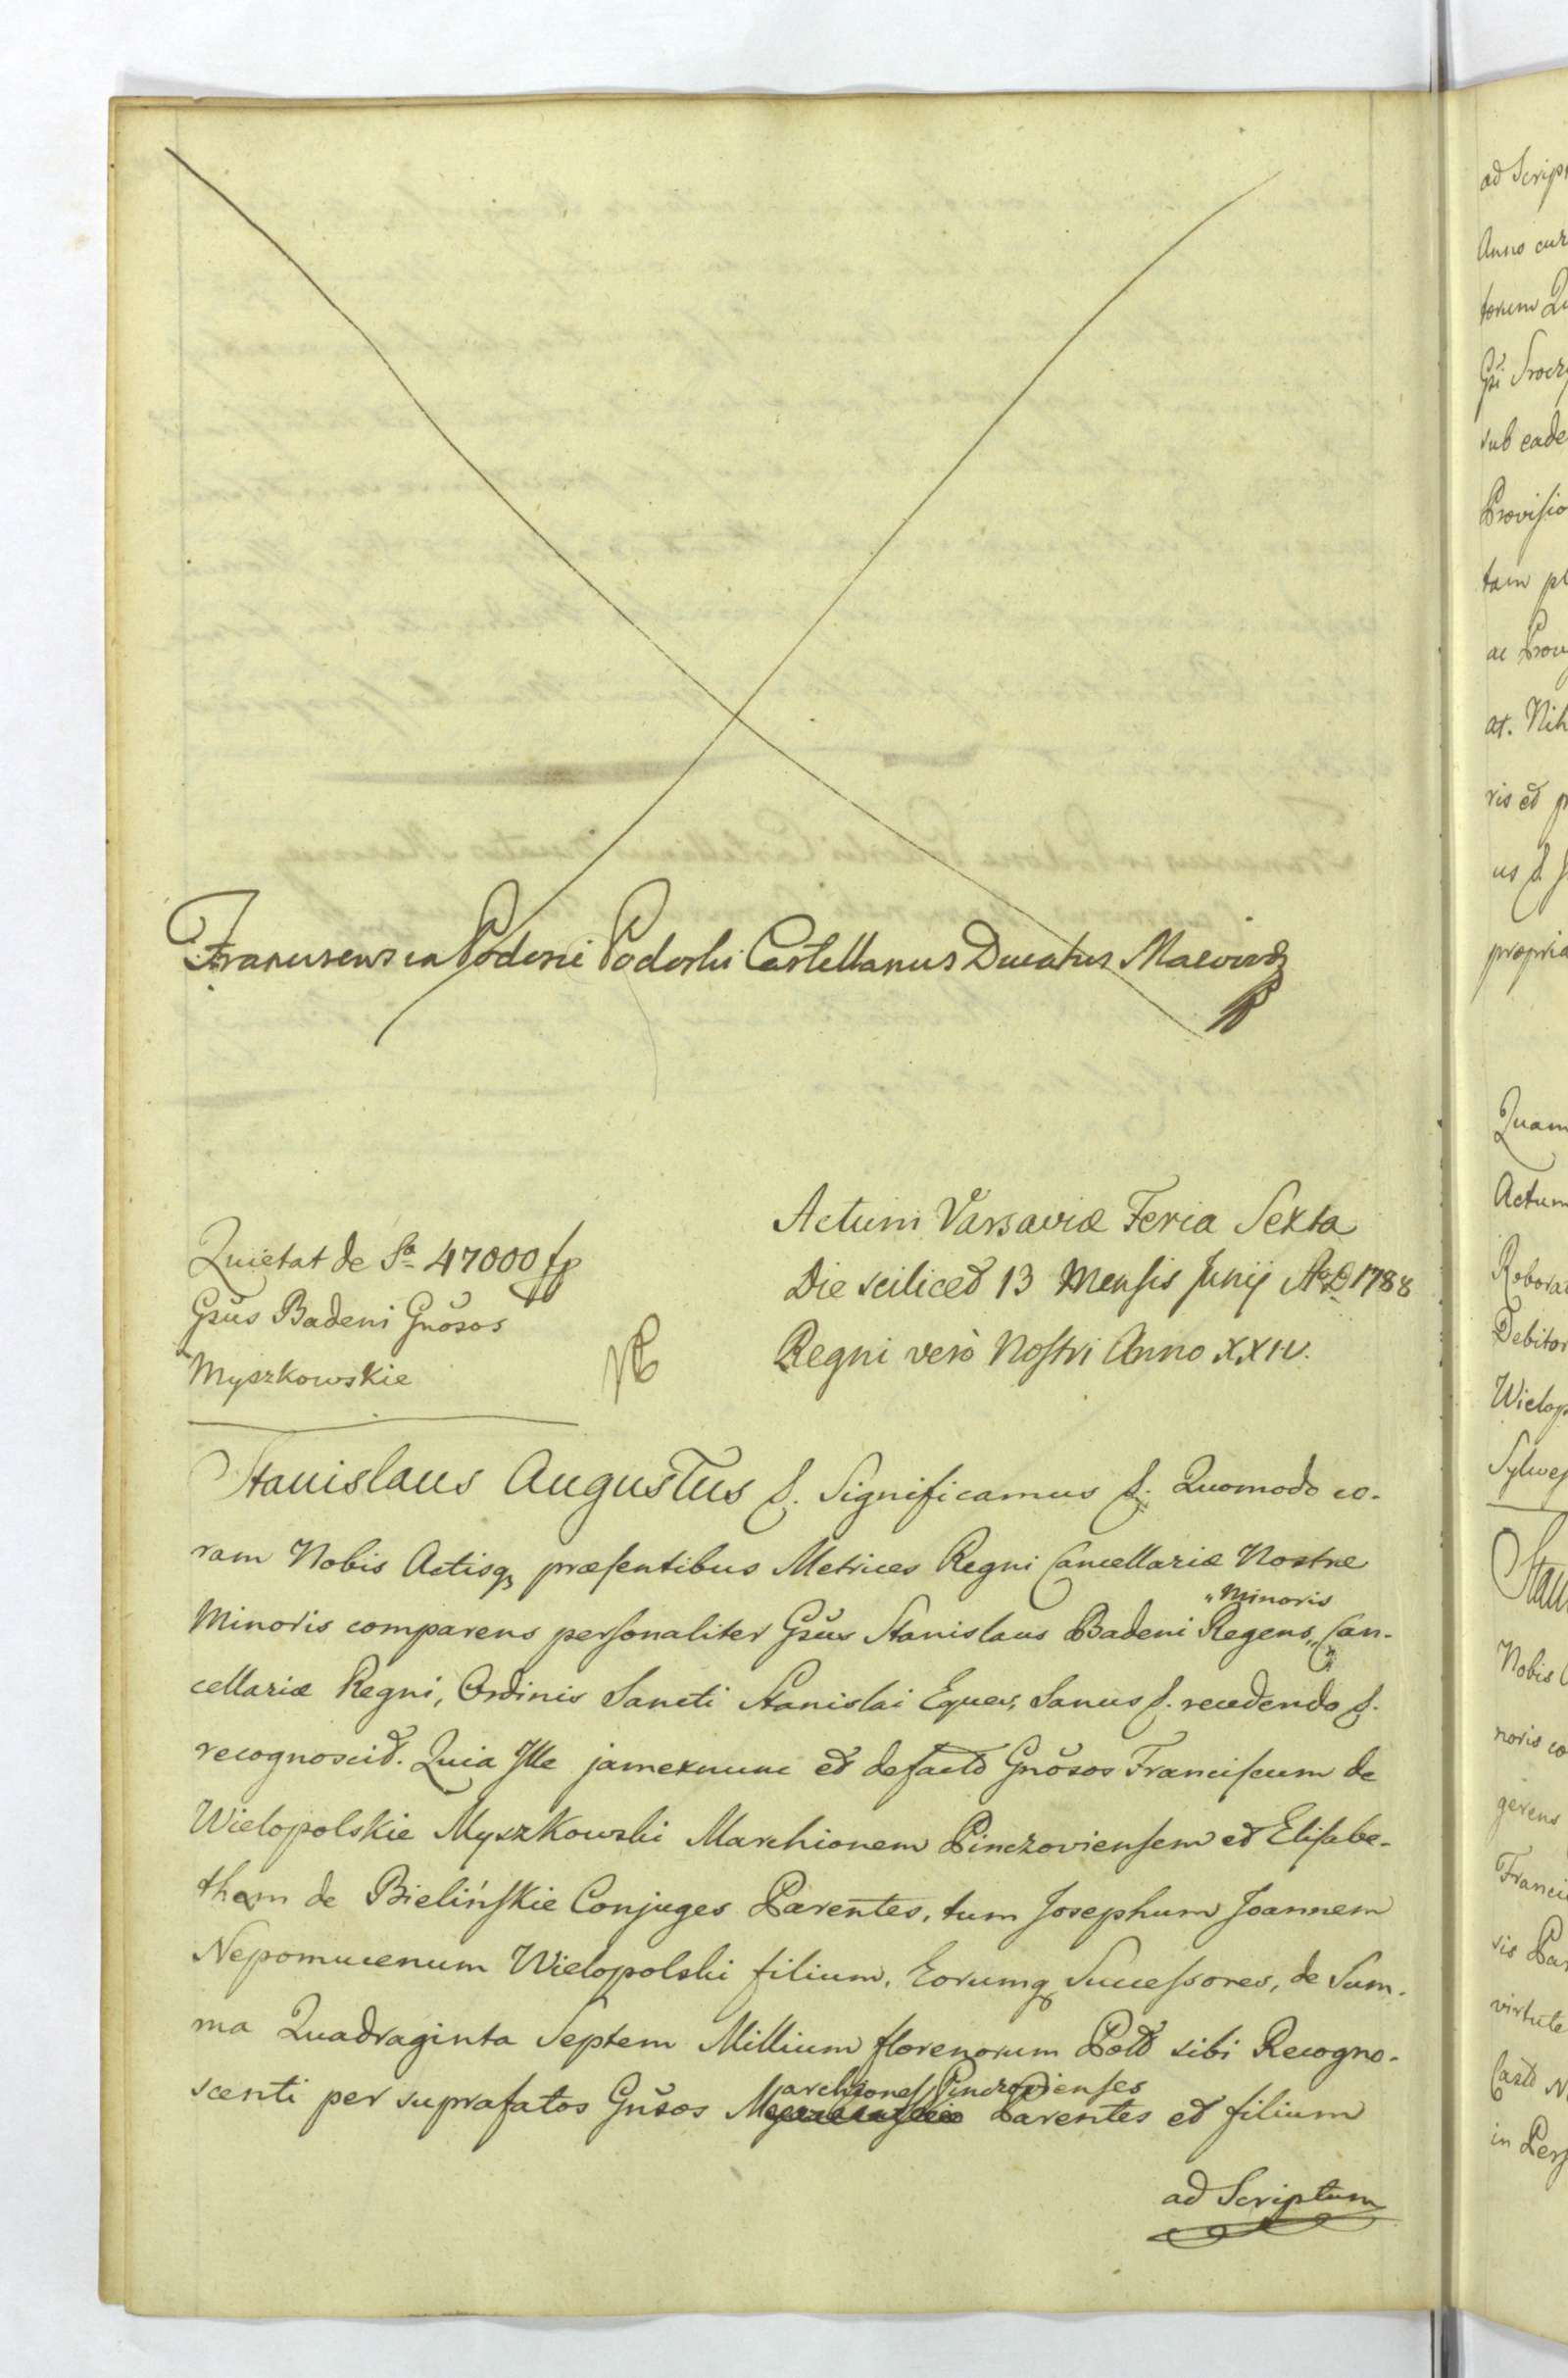 Franciscus in Podoski Podoski Castellanus Ducatus Mazoviæ
Quietat de Sa 47000 fp
Gsus Badeni Gnosos
Myszkowskie
Actum Varsaviæ Feria Sexta
Die scilicet 13 Mensis Junij A.D. 1788
Regni verò Nostri Anno XXIV.
Stanislaus Augustus &. Significamus &. Quomodo co-
ram Nobis Actisq, præsentibus Metrices Regni Cancellariæ Nostræ
Minoris comparens personaliter Gsus Stanislaus Badeni Regens „Minoris Can-
cellariæ Regni, Ordinis Sancti Stanislai Eques, Sanus &. recedendo &.
recognoscit. Quia Ille jamexnunc et defacto Gnosos Franciscum de
Wielopolskie Myszkowski Marchionem Pinczoviensem et Elisabe-
tham de Bielińskie Conjuges Parentes, tum Josephum Joannem
Nepomucenum Wielopolski filium, Eorumq Successores, de Sum-
ma Quadraginta Septem Millium florenorum Polt sibi Recogno-
scenti per suprafatos Gnosos Marchiones Pinczovienses Parentes et filium
ad Scriptum
ad Script
Anno cur
torum Qu
Gsi Srocz
sub eade
Provisio
tam pl
ac Prov
at. Nih
ris et p
us &
propria
Quam
Actum
Roborat
Debitor
Wielop
Sylwes
Stan
Nobis
noris co
gerens
Franci
sis Par
virtute
Cast N
in Pers